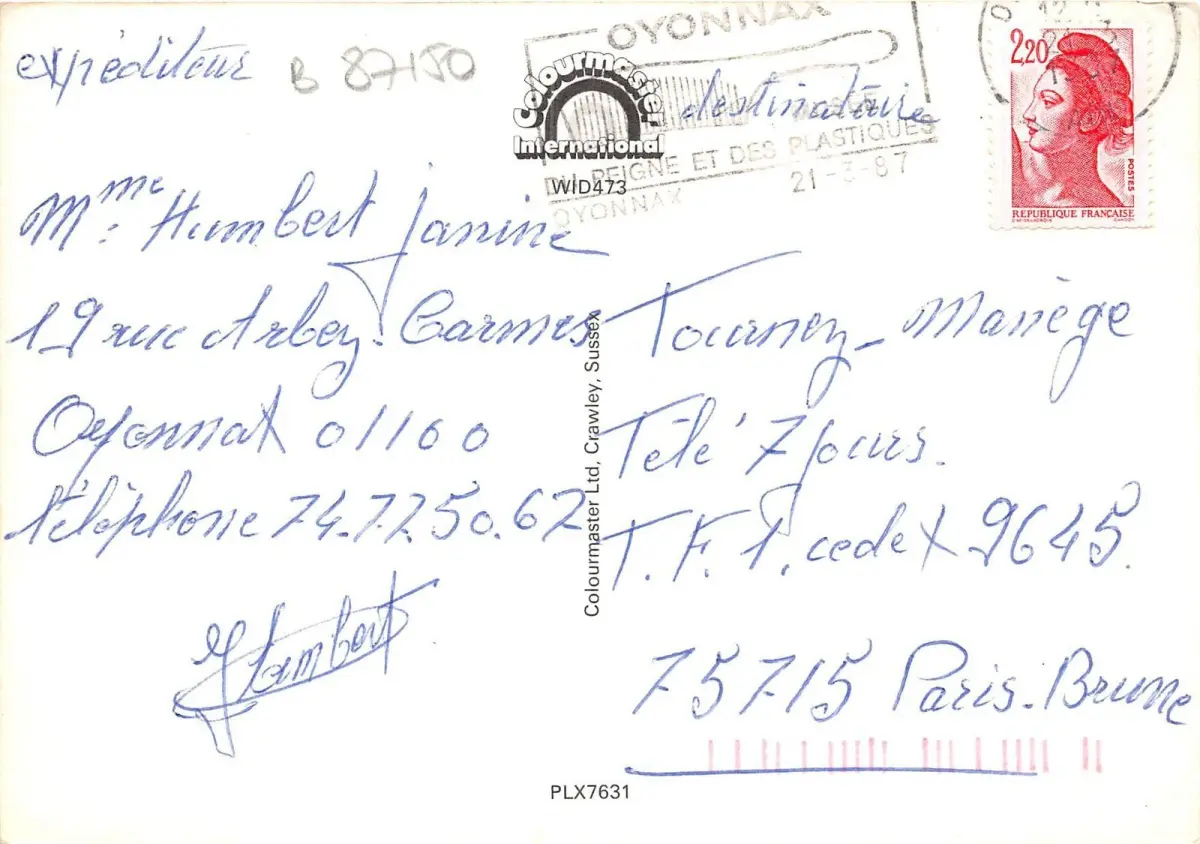 expéditeur
B 87150
OYONNAX
Colourmaster
International
destinataire
DU PEIGNE ET DES PLASTIQUES
21-3-87
OYONNAX
WID473
2,20
POSTES
REPUBLIQUE FRANÇAISE
Mme: Humbert Janine
19 rue Arbey. Carmes
Oyonnax 01100
téléphone 74.72.50.62
JHumbert
Colourmaster Ltd, Crawley, Sussex
Tournez_ Manège
Télé' 7 jours.
T.F.1. cedex 9645.
75715 Paris.Brune
PLX7631